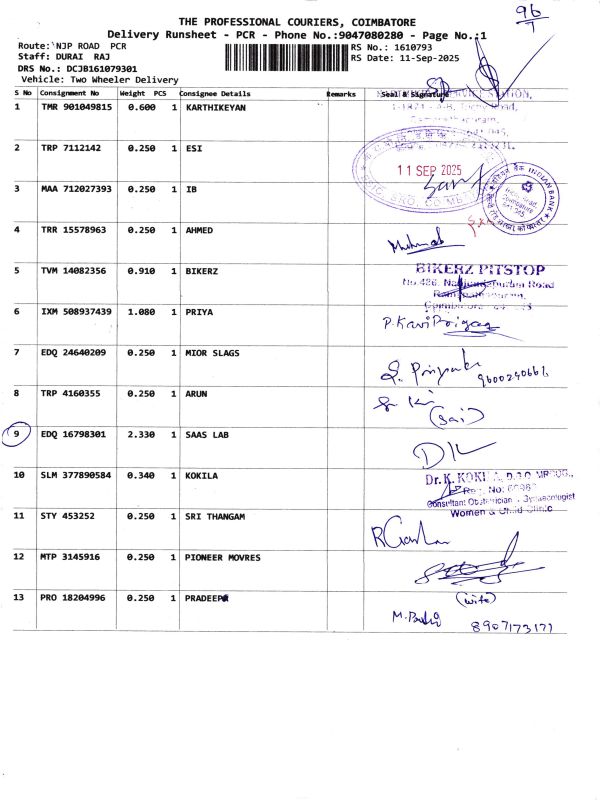 96
7
THE PROFESSIONAL COURIERS, COIMBATORE
Delivery Runsheet - PCR - Phone No.:9047080280 - Page No.:1
Route: NJP ROAD PCR
RS No.: 1610793
Staff: DURAI RAJ
RS Date: 11-Sep-2025
DRS No.: DCJB161079301
Vehicle: Two Wheeler Delivery
S No Consignment No Weight PCS Consignee Details Remarks Seal & Signature
1 TMR 901049815 0.600 1 KARTHIKEYAN
2 TRP 7112142 0.250 1 ESI
11 SEP 2025
3 MAA 712027393 0.250 1 IB
INDIAN BANK
4 TRR 15578963 0.250 1 AHMED
5 TVM 14082356 0.910 1 BIKERZ
BIKERZ PITSTOP
No.486, Road
6 IXM 508937439 1.080 1 PRIYA
7 EDQ 24640209 0.250 1 MIOR SLAGS
9600240666
8 TRP 4160355 0.250 1 ARUN
(Sai)
9 EDQ 16798301 2.330 1 SAAS LAB
10 SLM 377890584 0.340 1 KOKILA
Dr. K. KOKILA, D.G.O.
Reg. No:
Consultant Obstetrician & Gynaecologist
Women & Child Clinic
11 STY 453252 0.250 1 SRI THANGAM
12 MTP 3145916 0.250 1 PIONEER MOVRES
13 PRO 18204996 0.250 1 PRADEEP
(wife)
8907173177